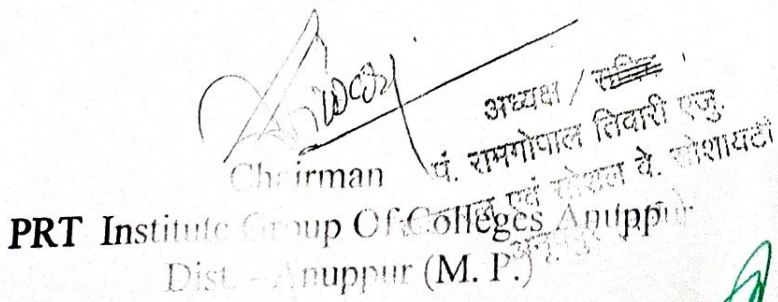 अध्यक्ष / सचिव
पं. रामगोपाल तिवारी एजु.
एवं सोशल वे. सोशायटी
Chairman
PRT Institute Group Of Colleges Anuppur
Dist. - Anuppur (M. P.)